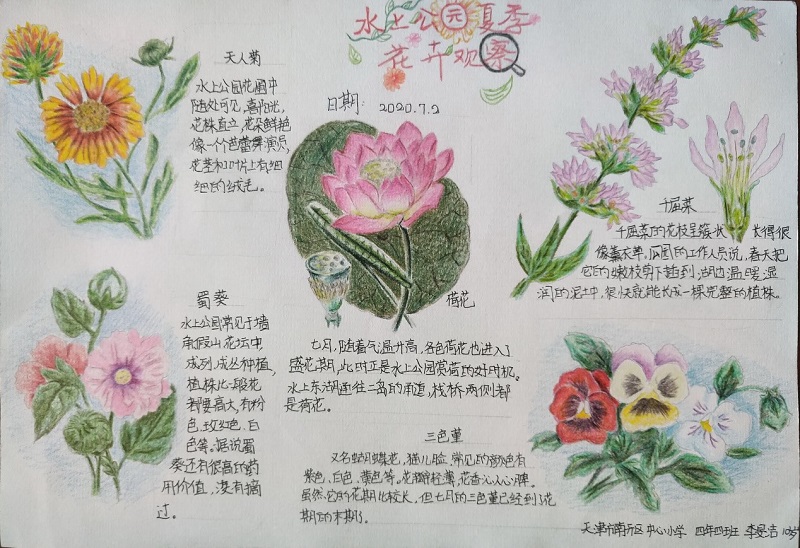 水上公园夏季
花卉观察
日期: 2020.7.2
天人菊
水上公园花圃中
随处可见,喜阳光,
花株直立,花朵鲜艳
像一个芭蕾舞演员,
花茎和叶片上有细
细的绒毛。
千屈菜
千屈菜的花枝呈簇长 长得很
像薰衣草。公园的工作人员说,春天把
它的嫩枝剪下插到湖边温暖湿
润的泥土中,很快就能长成一棵完整的植株。
荷花
七月,随着气温升高,各色荷花也进入了
盛花期,此时正是水上公园赏荷的好时机。
水上东湖通往二岛的甬道,栈桥两侧都
是荷花。
蜀葵
水上公园常见于墙
角假山花坛中,
成列成丛种植,
植株比一般花
都要高大,有粉
色、玫红色、白
色等。据说蜀
葵还有很高的药
用价值,没有摘
过。
三色堇
又名蝴蝶花,猫儿脸,常见的颜色有
紫色、白色、黄色等。花瓣轻薄,花香沁人心脾。
虽然它的花期比较长,但七月的三色堇已经到花
期的末期了。
天津市南开区中心小学 四年四班 李旻洁 10岁